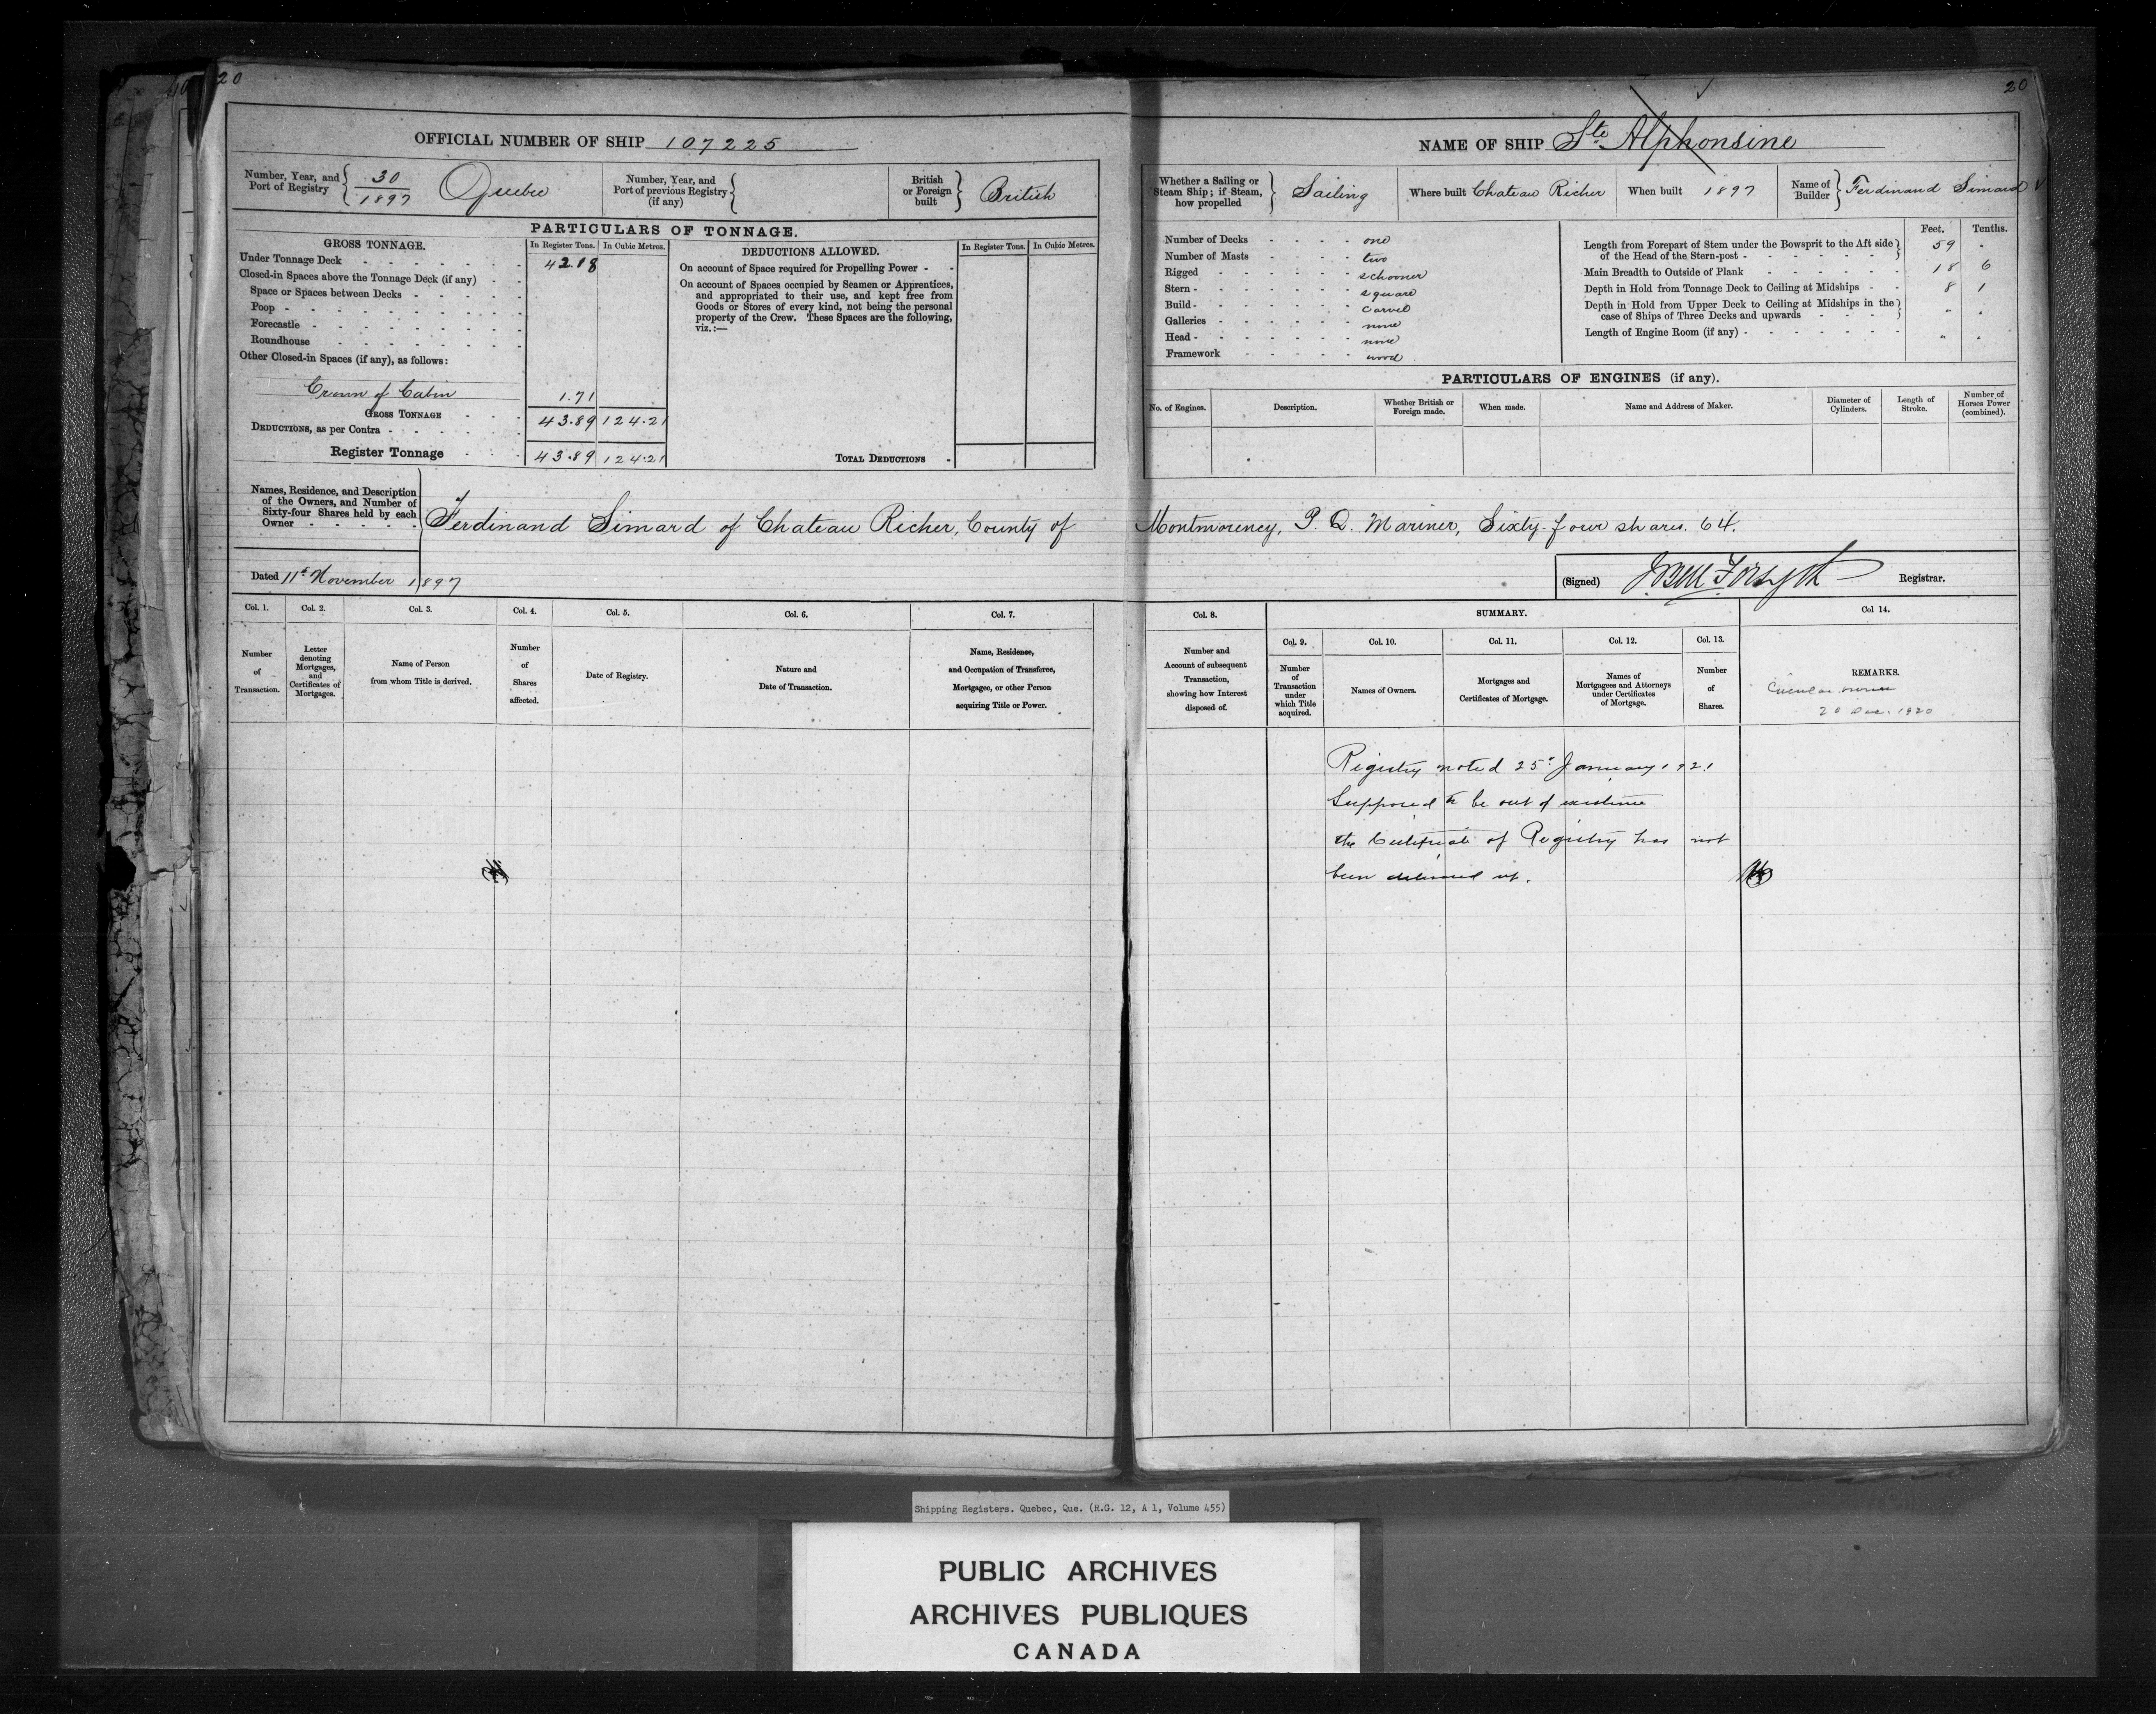 20
20
OFFICIAL NUMBER OF SHIP 107225
Number, Year, and Port of Registry
30
1897
Quebec
Number, Year, and Port of previous Registry (if any)
British or Foreign built
British
PARTICULARS OF TONNAGE.
GROSS TONNAGE.
In Register Tons.
In Cubic Metres.
DEDUCTIONS ALLOWED.
In Register Tons.
In Cubic Metres.
Under Tonnage Deck 42.18
Closed-in Spaces above the Tonnage Deck (if any)
Space or Spaces between Decks
Poop
Forecastle
Roundhouse
Other Closed-in Spaces (if any), as follows:
Crown of Cabin 1.71
GROSS TONNAGE 43.89 124.21
DEDUCTIONS, as per Contra
Register Tonnage 43.89 124.21
On account of Space required for Propelling Power
On account of Spaces occupied by Seamen or Apprentices,
and appropriated to their use, and kept free from
Goods or Stores of every kind, not being the personal
property of the Crew. These Spaces are the following,
viz.:—
TOTAL DEDUCTIONS
NAME OF SHIP Ste Alphonsine
Whether a Sailing or Steam Ship; if Steam, how propelled
Sailing
Where built Chateau Richer
When built 1897
Name of Builder
Ferdinand Simard
Number of Decks one
Number of Masts two
Rigged schooner
Stern square
Build carvel
Galleries none
Head none
Framework wood
Feet. Tenths.
Length from Forepart of Stem under the Bowsprit to the Aft side
of the Head of the Stern-post 59 .
Main Breadth to Outside of Plank 18 6
Depth in Hold from Tonnage Deck to Ceiling at Midships 8 1
Depth in Hold from Upper Deck to Ceiling at Midships in the
case of Ships of Three Decks and upwards
Length of Engine Room (if any)
PARTICULARS OF ENGINES (if any).
No. of Engines.
Description.
Whether British or Foreign made.
When made.
Name and Address of Maker.
Diameter of Cylinders.
Length of Stroke.
Number of Horses Power (combined).
Names, Residence, and Description
of the Owners, and Number of
Sixty-four Shares held by each
Owner
Ferdinand Simard of Chateau Richer, County of Montmorency, P. Q. Mariner, Sixty-four shares. 64.
Dated 11th November 1897
(Signed)
Registrar.
Col. 1.
Col. 2.
Col. 3.
Col. 4.
Col. 5.
Col. 6.
Col. 7.
Col. 8.
SUMMARY.
Col. 9.
Col. 10.
Col. 11.
Col. 12.
Col. 13.
Col 14.
Number of Transaction.
Letter denoting Mortgages, and Certificates of Mortgages.
Name of Person from whom Title is derived.
Number of Shares affected.
Date of Registry.
Nature and Date of Transaction.
Name, Residence, and Occupation of Transferee, Mortgagee, or other Person acquiring Title or Power.
Number and Account of subsequent Transaction, showing how Interest disposed of.
Number of Transaction under which Title acquired.
Names of Owners.
Mortgages and Certificates of Mortgage.
Names of Mortgagees and Attorneys under Certificates of Mortgage.
Number of Shares.
REMARKS.
20 Dec. 1920
Registry noted 25th January 1921
Supposed to be out of existence
the Certificate of Registry has not
been delivered up.
Shipping Registers. Quebec, Que. (R.G. 12, A 1, Volume 455)
PUBLIC ARCHIVES
ARCHIVES PUBLIQUES
CANADA